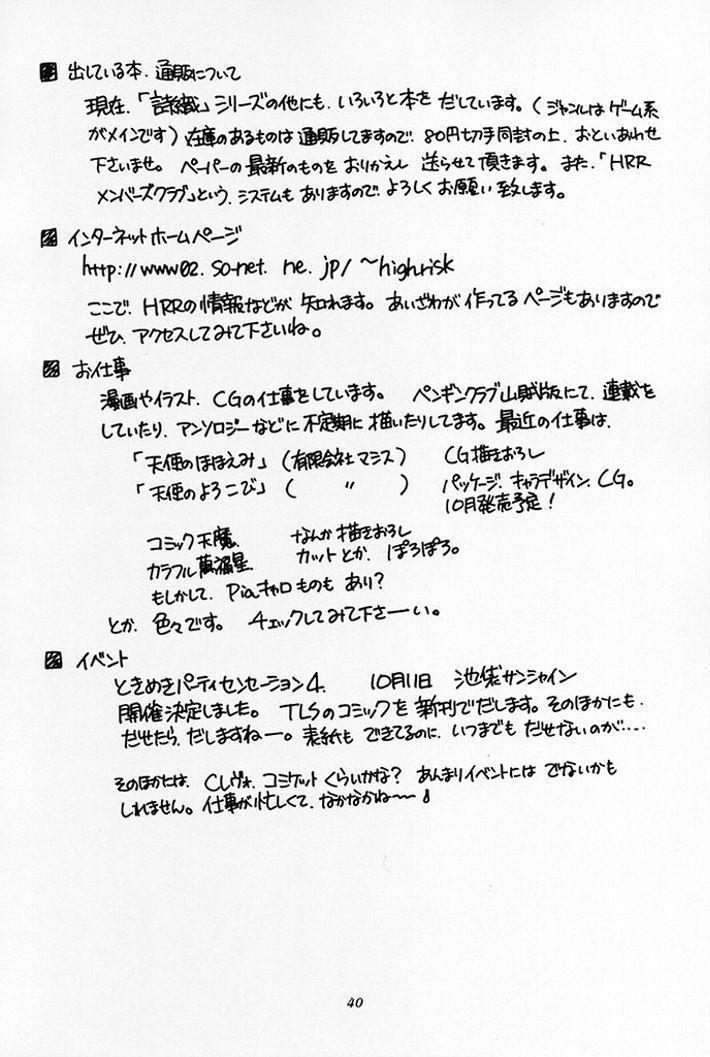 出している本、通販について
現在、「詩織」シリーズの他にも、いろいろと本を だしています。(ジャンルは ゲーム系
がメインです) 在庫のあるものは 通販してますので、80円切手同封の上、おといあわせ
下さいませ。 ペーパーの 最新のものを おりかえし 送らせて頂きます。 また、「HRR
メンバーズクラブ」という、システムも ありますので、よろしく お願い 致します。
インターネットホームページ
http://www02.so-net.ne.jp/~highrisk
ここで、HRRの情報などが 知れます。あいざわが 作ってる ページもありますので
ぜひ、アクセスしてみて下さいね。
お仕事
漫画やイラスト、CGの仕事をしています。 ペンギンクラブ山賊版にて、連載を
していたり、アンソロジーなどに 不定期に 描いたりしてます。最近の仕事は、
「天使のほほえみ」(有限会社マシス) CG描きおろし
「天使のよろこび」( 〃 ) パッケージ、キャラデザイン、CG。
10月発売予定!
コミック天魔、 なんか描きおろし
カラフル萬福星、 カットとか、ぽろぽろ。
もしかして、Piaキャロものも あり?
とか、色々です。 チェックしてみて下さーい。
イベント
ときめきパーティセンセーション4、 10月11日 池袋サンシャイン
開催決定しました。 TLSのコミックを 新刊でだします。そのほかにも、
だせたら、だしますねー。表紙も できてるのに、いつまでも だせないのが‥‥
そのほかには、Cレヴォ、コミケット くらいかな? あんまりイベントには でないかも
しれません。仕事が忙しくて、なかなかね〜〜♪
40